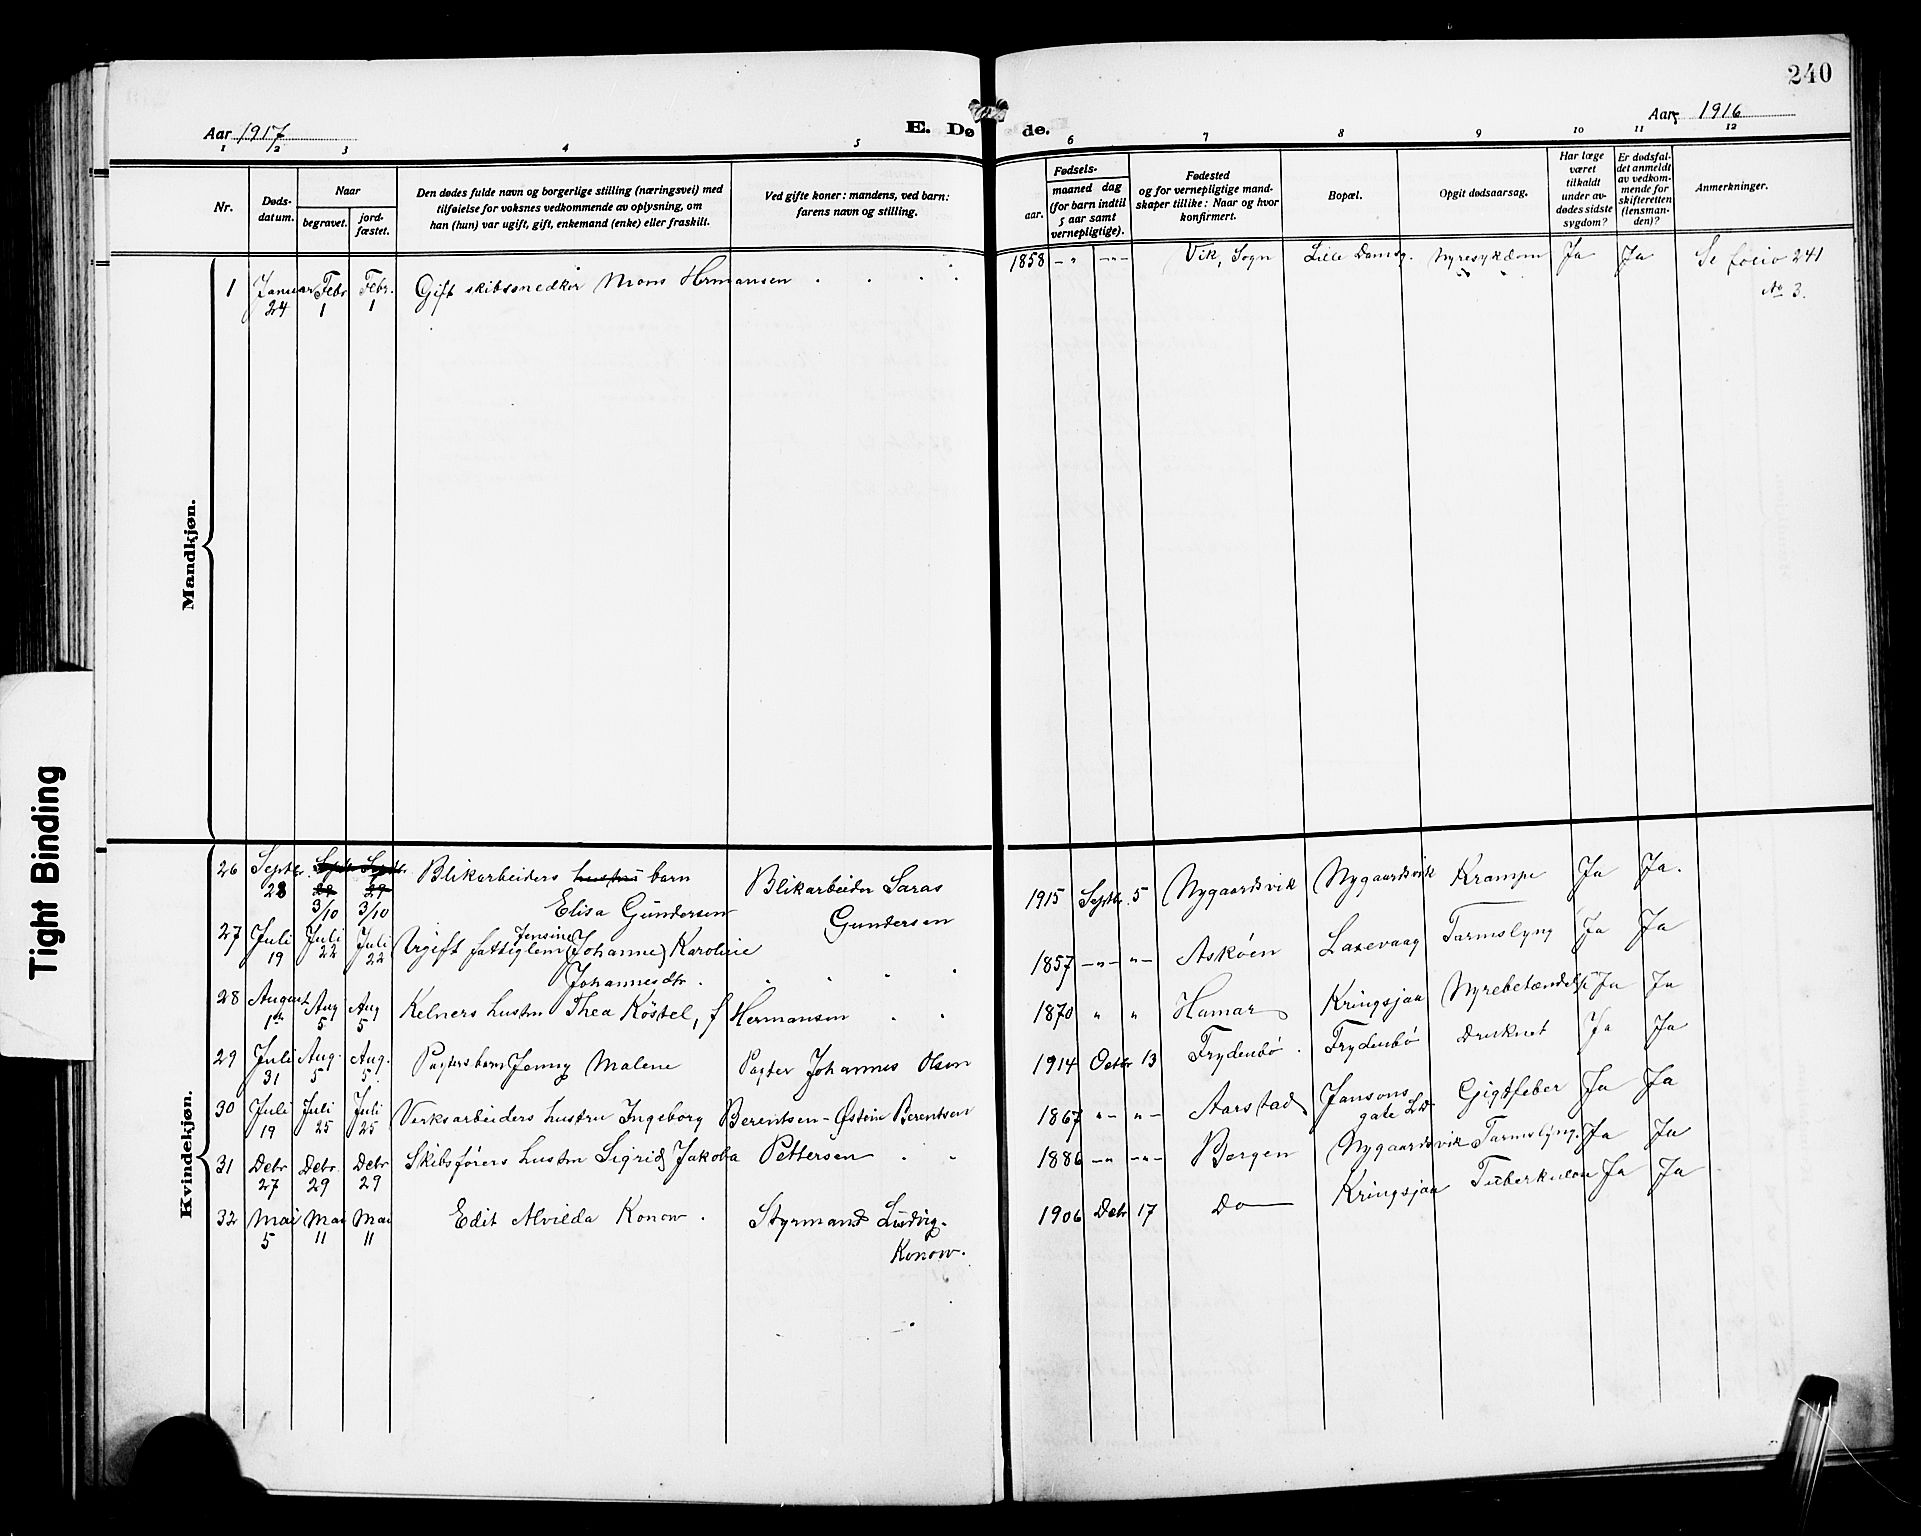 240
Aar 1917
E. Dø de.
Aar 1916
1 2 3 4 5 6 7 8 9 10 11 12
Nr.
Døds-
datum.
Naar
begravet.
jord-
fæstet.
Den dødes fulde navn og borgerlige stilling (næringsvei) med
tilføielse for voksnes vedkommende av oplysning, om
han (hun) var ugift, gift, enkemand (enke) eller fraskilt.
Ved gifte koner: mandens, ved barn:
farens navn og stilling.
Fødsels-
aar.
maaned dag
(for barn indtil
5 aar samt
vernepligtige).
Fødested
og for vernepligtige mand-
skaper tillike: Naar og hvor
konfirmert.
Bopæl.
Opgit dødsaarsag.
Har læge
været
tilkaldt
under av-
dødes sidste
sygdom?
Er dødsfal-
det anmeldt
av vedkom-
mende for
skifteretten
(lensman-
den)?
Anmerkninger.
Mandkjøn.
1 Januar Febr Febr. Gift skibssnedker Mons Hermansen 1858 Vik, Sogn Lille Damsg. Nyresykdom Ja Ja Se folio 241
24 1 1 No 3.
Tight Binding
Kvindekjøn.
26 Septbr. Septr. Septbr. Blikarbeiders hustru barn Blikarbeider Saras 1915 Septr. 5 Nygaardsvik Nygaardsvik Krampe Ja Ja.
28 29 29
3/10 3/10 Elisa Gundersen Gundersen
27 Juli Juli Juli Ugift fattiglem Jensine (Johanne) Karoline 1857 Askøen Laxevaag Tarmslyng Ja Ja
19 22 22 Johannesdtr.
28 August Aug Aug Kelners hustru Thea Köstel, f Hermansen 1870 Hamar Kringsjaa Nyrebetændelse Ja Ja
1st 5 5
29 Juli Aug. Aug. Pagters barn Jenny Malene Pagter Johannes Olsen 1914 Octbr 13 Frydenbø Frydenbø Druknet Ja Ja
31 5 5
30 Juli Juli Juli Verksarbeiders hustru Ingeborg Berentsen - Østein Berentsen 1867 Aarstad Jansons Gigtfeber Ja Ja
19 25 25 gate
31 Debr Debr. Debr Skibsførers hustru Sigrid Jakoba Pettersen 1886 Bergen Nygaardsvik Tarmslyng. Ja Ja
27 29 29
32 Mai Mai Mai Edit Alvilda Konow. Styrmand Ludvig. 1906 Debr 17 Do Kringsjaa Tuberkulose Ja Ja
5 11 11 Konow.